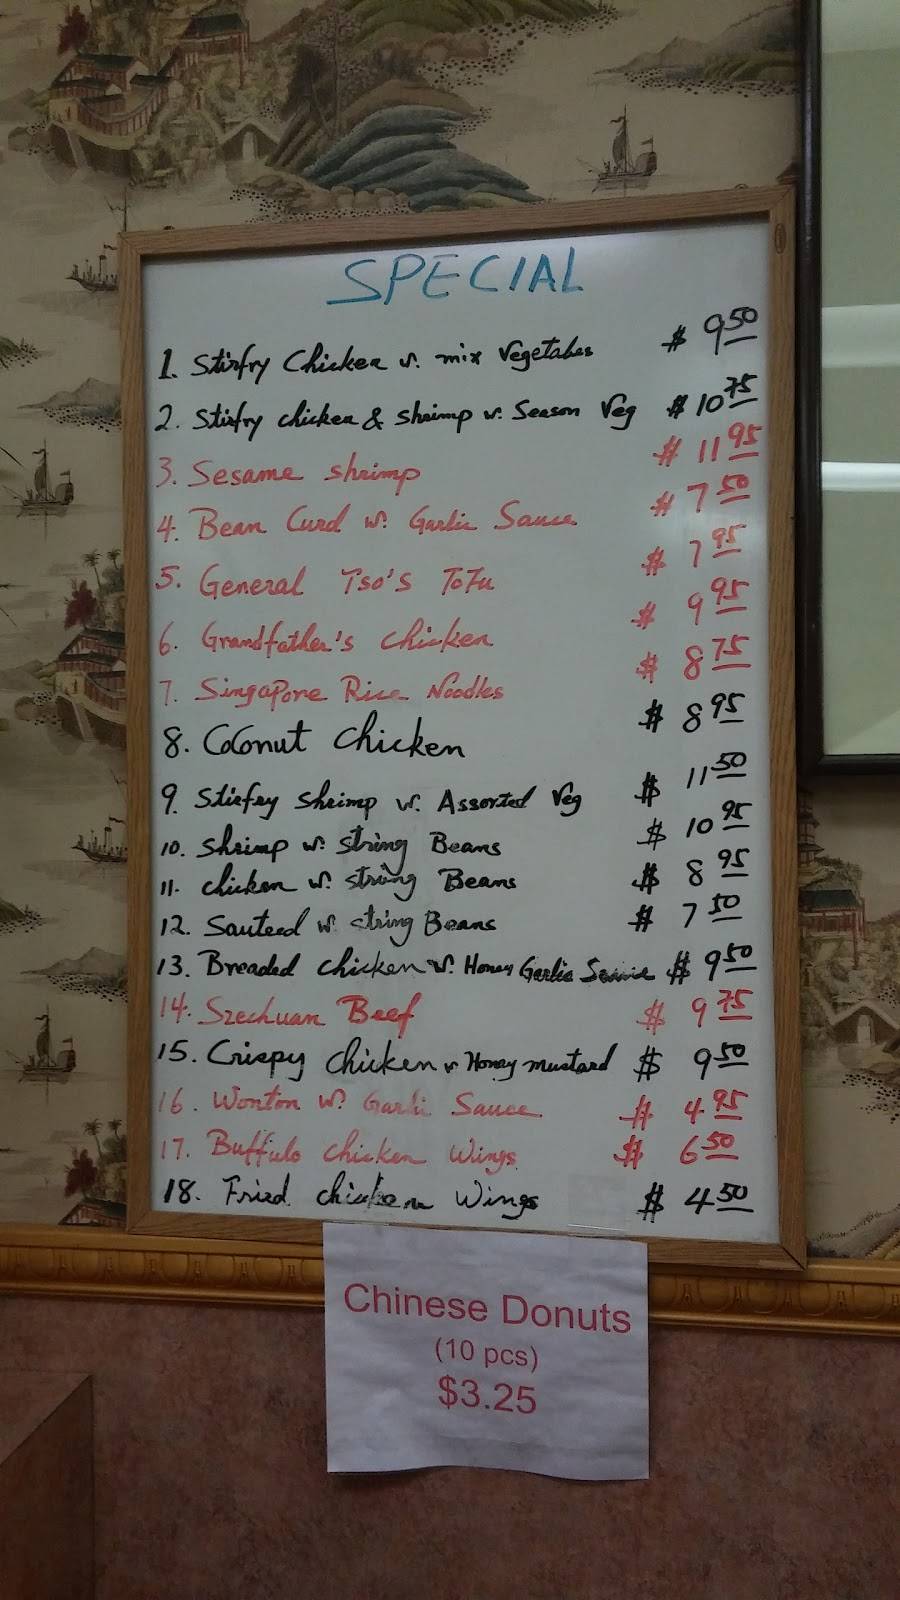 SPECIAL
1. Stirfry Chicken w. mix Vegetabes $ 9.50
2. Stirfry chicken & shrimp w. Season Veg $ 10.75
3. Sesame shrimp $ 11.95
4. Bean Curd w. Garlic Sauce $ 7.50
5. General Tso's ToFu $ 7.95
6. Grandfather's chicken $ 9.95
7. Singapore Rice Noodles $ 8.75
8. Coconut chicken $ 8.95
9. Stirfry shrimp w. Assorted Veg $ 11.50
10. shrimp w. string Beans $ 10.95
11. chicken w. string Beans $ 8.95
12. Sauteed w. string Beans $ 7.50
13. Breaded chicken w. Honey Garlic Sauce $ 9.50
14. Szechuan Beef $ 9.75
15. Crispy chicken w Honey mustard $ 9.50
16. Wonton w. Garlic Sauce $ 4.95
17. Buffulo chicken Wings $ 6.50
18. Fried chicken Wings $ 4.50
Chinese Donuts
(10 pcs)
$3.25